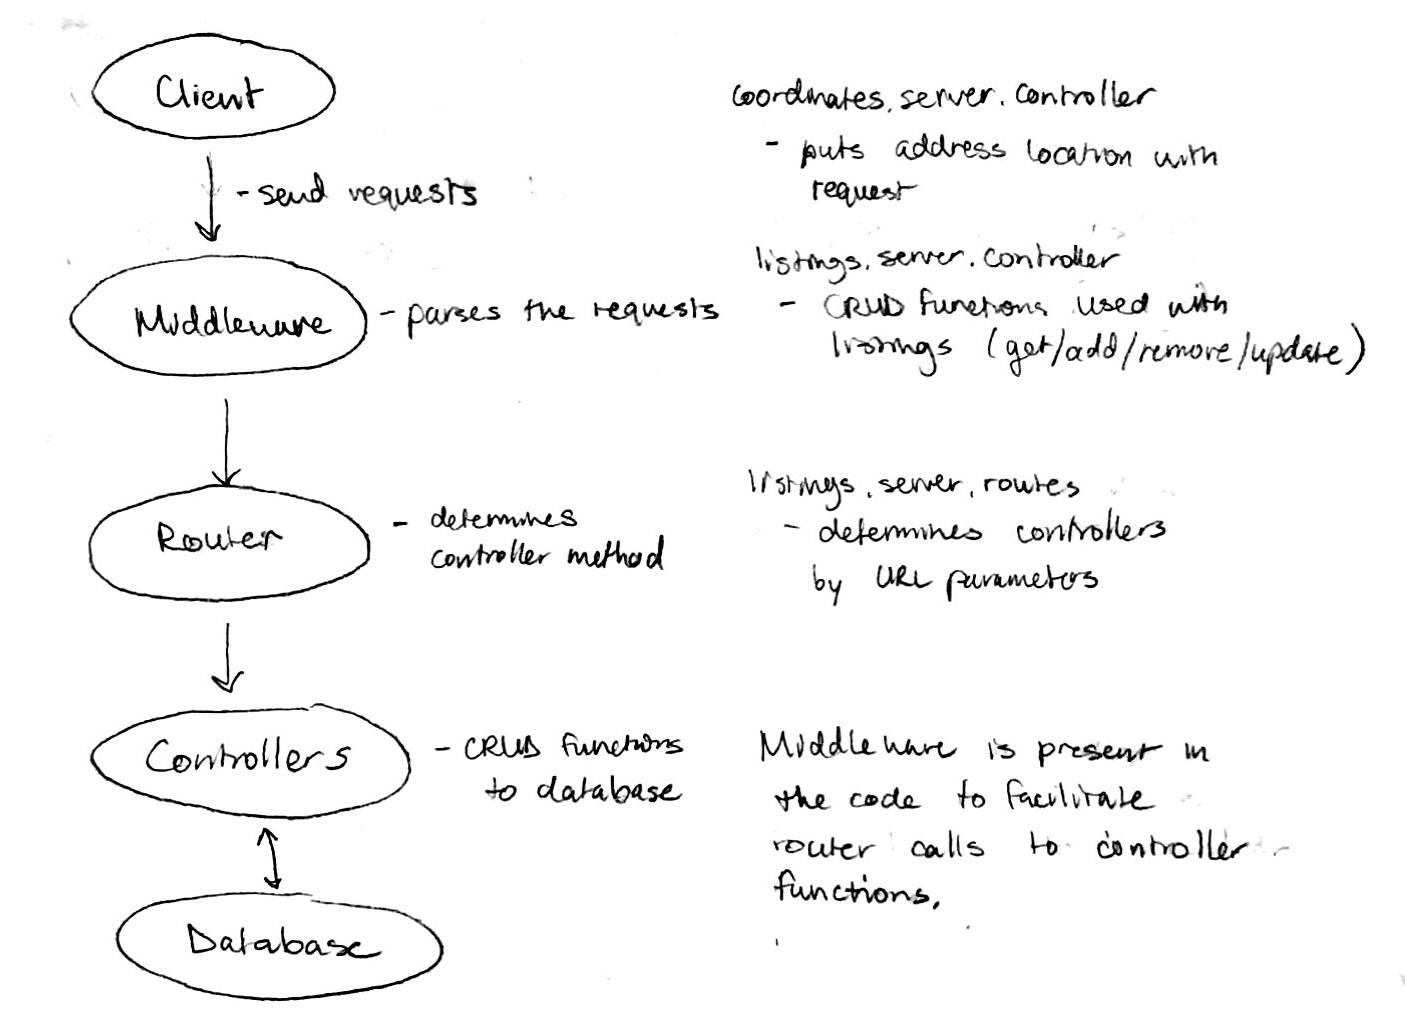 Client
- send requests
Middleware
- parses the requests
Router
- determines
controller method
Controllers
- CRUD functions
to database
Database
coordinates.server.controller
- puts address location with
request
listings.server.controller
- CRUD functions used with
listings (get/add/remove/update)
listings.server.routes
- determines controllers
by URL parameters
Middleware is present in
the code to facilitate
router calls to controller
functions.